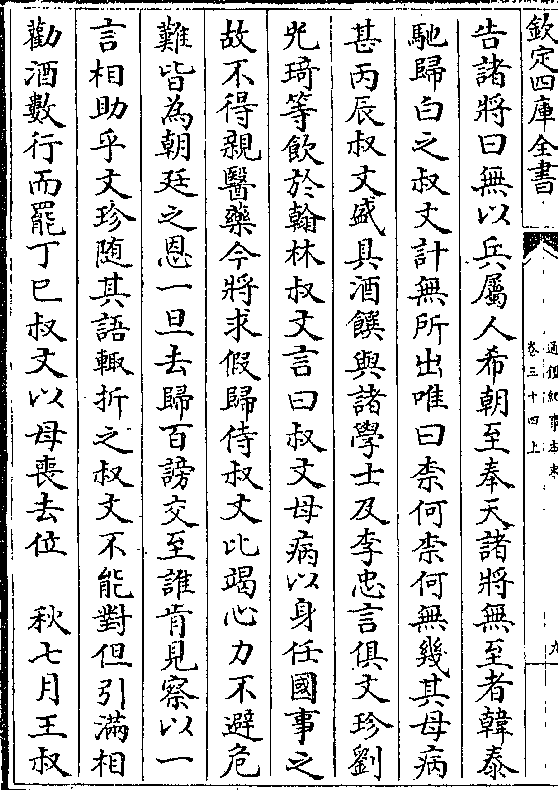 欽定四庫全書
通鑑紀事本末
卷三十四上
九
告諸將曰無以兵屬人希朝至奉天諸將無至者韓泰
馳歸白之叔文計無所出唯曰柰何柰何無幾其母病
甚丙辰叔文盛具酒饌與諸學士及李忠言俱文珍劉
光琦等飲於翰林叔文言曰叔文母病以身任國事之
故不得親醫藥今將求假歸侍叔文比竭心力不避危
難皆為朝廷之恩一旦去歸百謗交至誰肯見察以一
言相助乎文珍隨其語輙折之叔文不能對但引滿相
勸酒數行而罷丁巳叔文以母喪去位　秋七月王叔